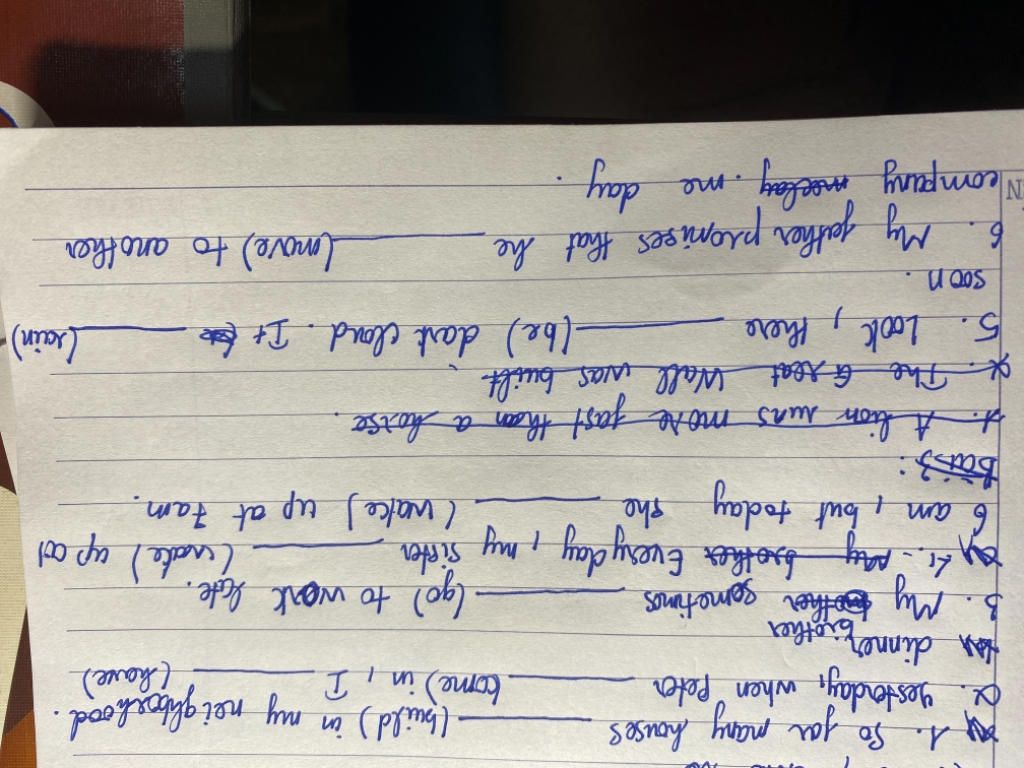 1. So far many houses ______ (build) in my neighborhood.
2. Yesterday, when Peter ______ (come) in, I ______ (have)
dinner
brother
3. My sometimes ______ (go) to work late.
4. my brother Everyday, my sister ______ (wake) up at
6 am, but today she ______ (wake) up at 7am.
Bài 3:
1. A lion runs more fast than a horse.
2. The Great Wall was built
5. Look, there ______ (be) dark cloud. It ______ (rain)
soon.
6. My father promises that he ______ (move) to another
company one day.